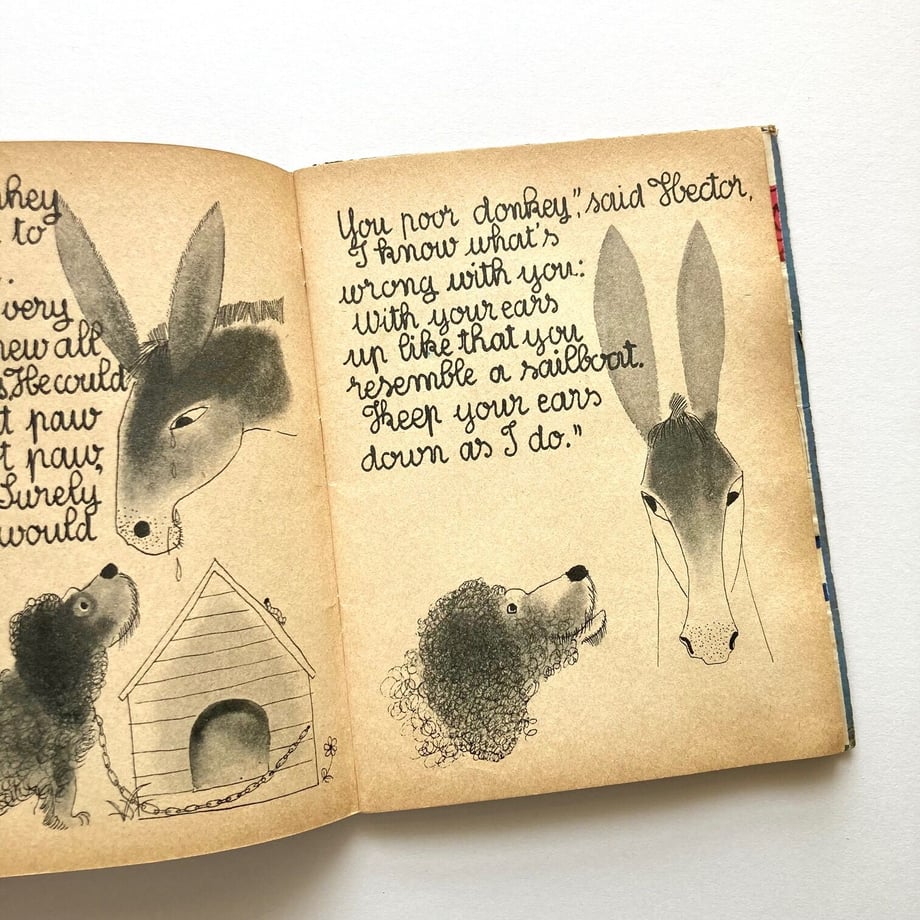 to
very
all
He could
paw
paw,
Surely
would
You poor donkey," said Hector,
I know what's
wrong with you:
With your ears
up like that you
resemble a sailboat.
Keep your ears
down as I do."